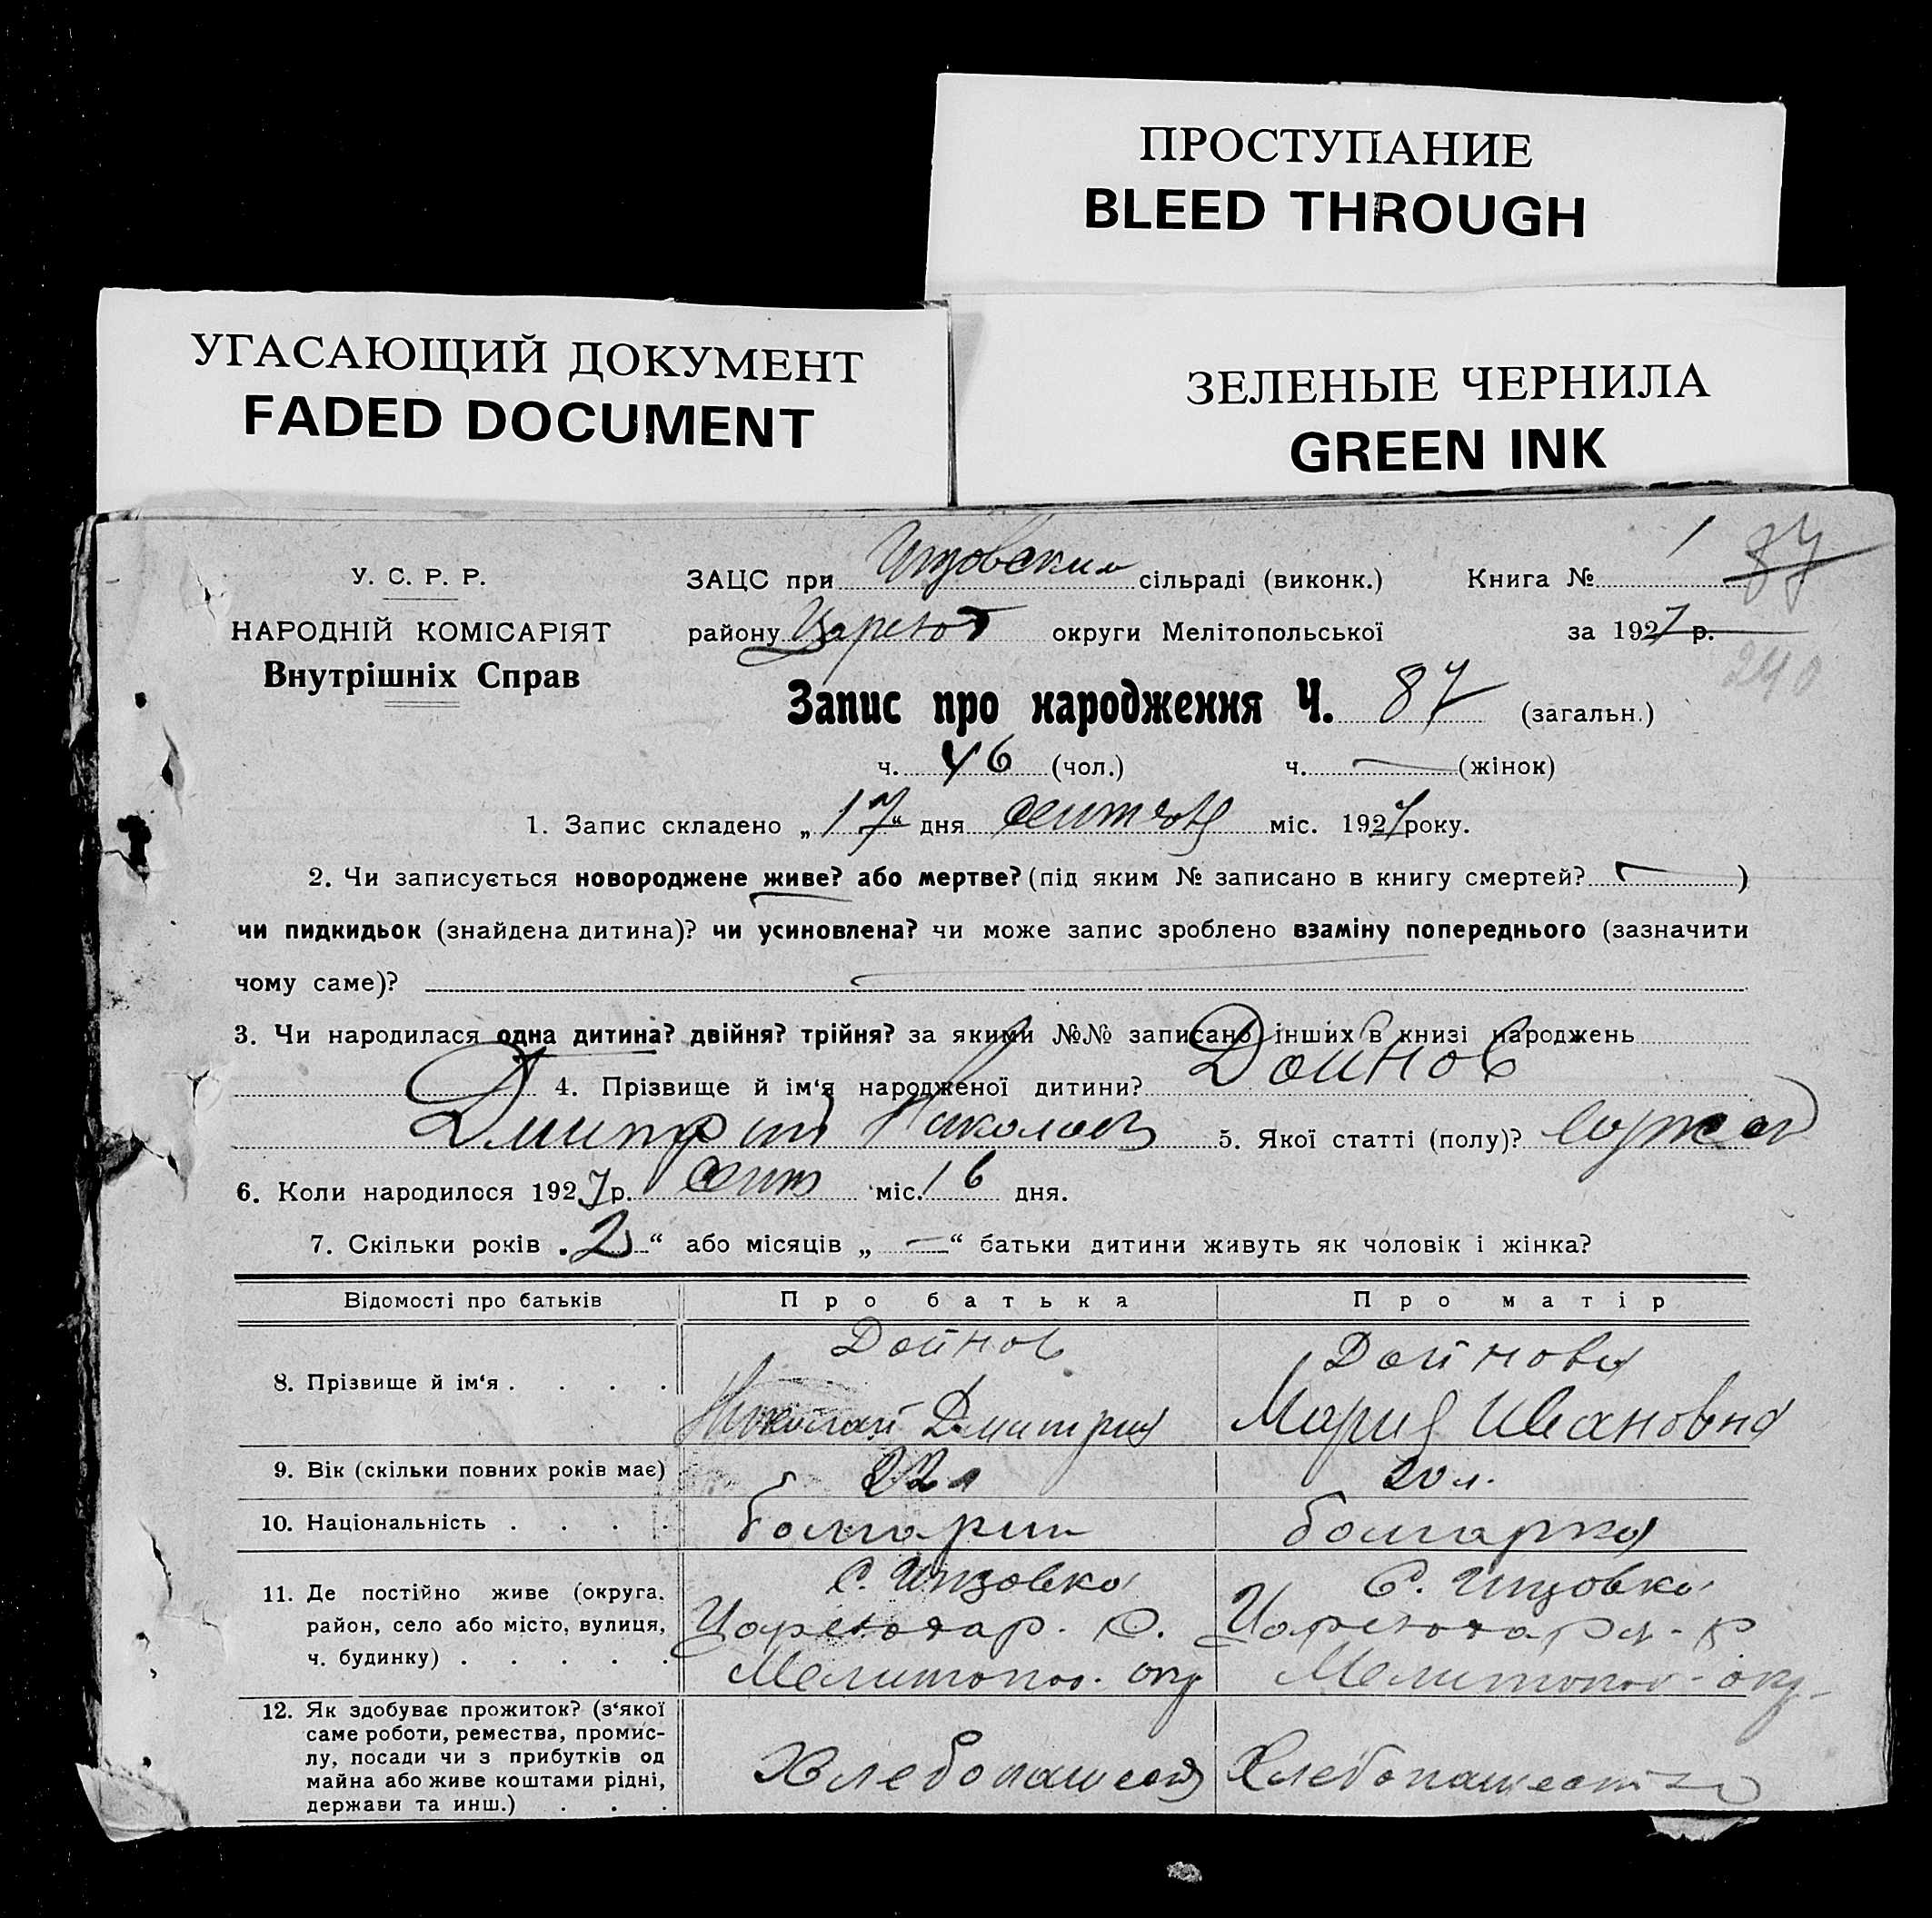 ПРОСТУПАНИЕ
BLEED THROUGH
УГАСАЮЩИЙ ДОКУМЕНТ
FADED DOCUMENT
ЗЕЛЕНЫЕ ЧЕРНИЛА
GREEN INK
У. С. Р. Р.
НАРОДНІЙ КОМІСАРІЯТ
Внутрішніх Справ
ЗАЦС при сільраді (виконк.) Книга № 1 87
району округи Мелітопольської за 1927 р.
240
Запис про народження Ч. 87 (загальн.)
ч. 46 (чол.) ч. — (жінок)
1. Запис складено „17“ дня міс. 1927 року.
2. Чи записується новороджене живе? або мертве? (під яким № записано в книгу смертей? — )
чи пидкидьок (знайдена дитина)? чи усиновлена? чи може запис зроблено взаміну попереднього (зазначити
чому саме)? —
3. Чи народилася одна дитина? двійня? трійня? за якими №№ записано інших в книзі народжень
4. Прізвище й ім‘я народженої дитини? Дойнов
Дмитрий Николаев 5. Якої статті (полу)?
6. Коли народилося 1927 р. сент міс. 16 дня.
7. Скільки років „2“ або місяців „—“ батьки дитини живуть як чоловік і жінка?
Відомості про батьків Про батька Про матір
8. Прізвище й ім‘я . . . . Дойнов Дойнова
Николай Дмитрия Мария Ивановна
9. Вік (скільки повних років має) 22 л 20 л.
10. Національність . . . . болгарин болгарка
11. Де постійно живе (округа, район, село або місто, вулиця, ч. будинку) . . . . .
С. С.
Р. Р
Мелитопол. окр Мелитопол. окр.
12. Як здобуває прожиток? (з‘якої
саме роботи, ремества, промис-
лу, посади чи з прибутків од
майна або живе коштами рідні,
держави та инш.) . . .